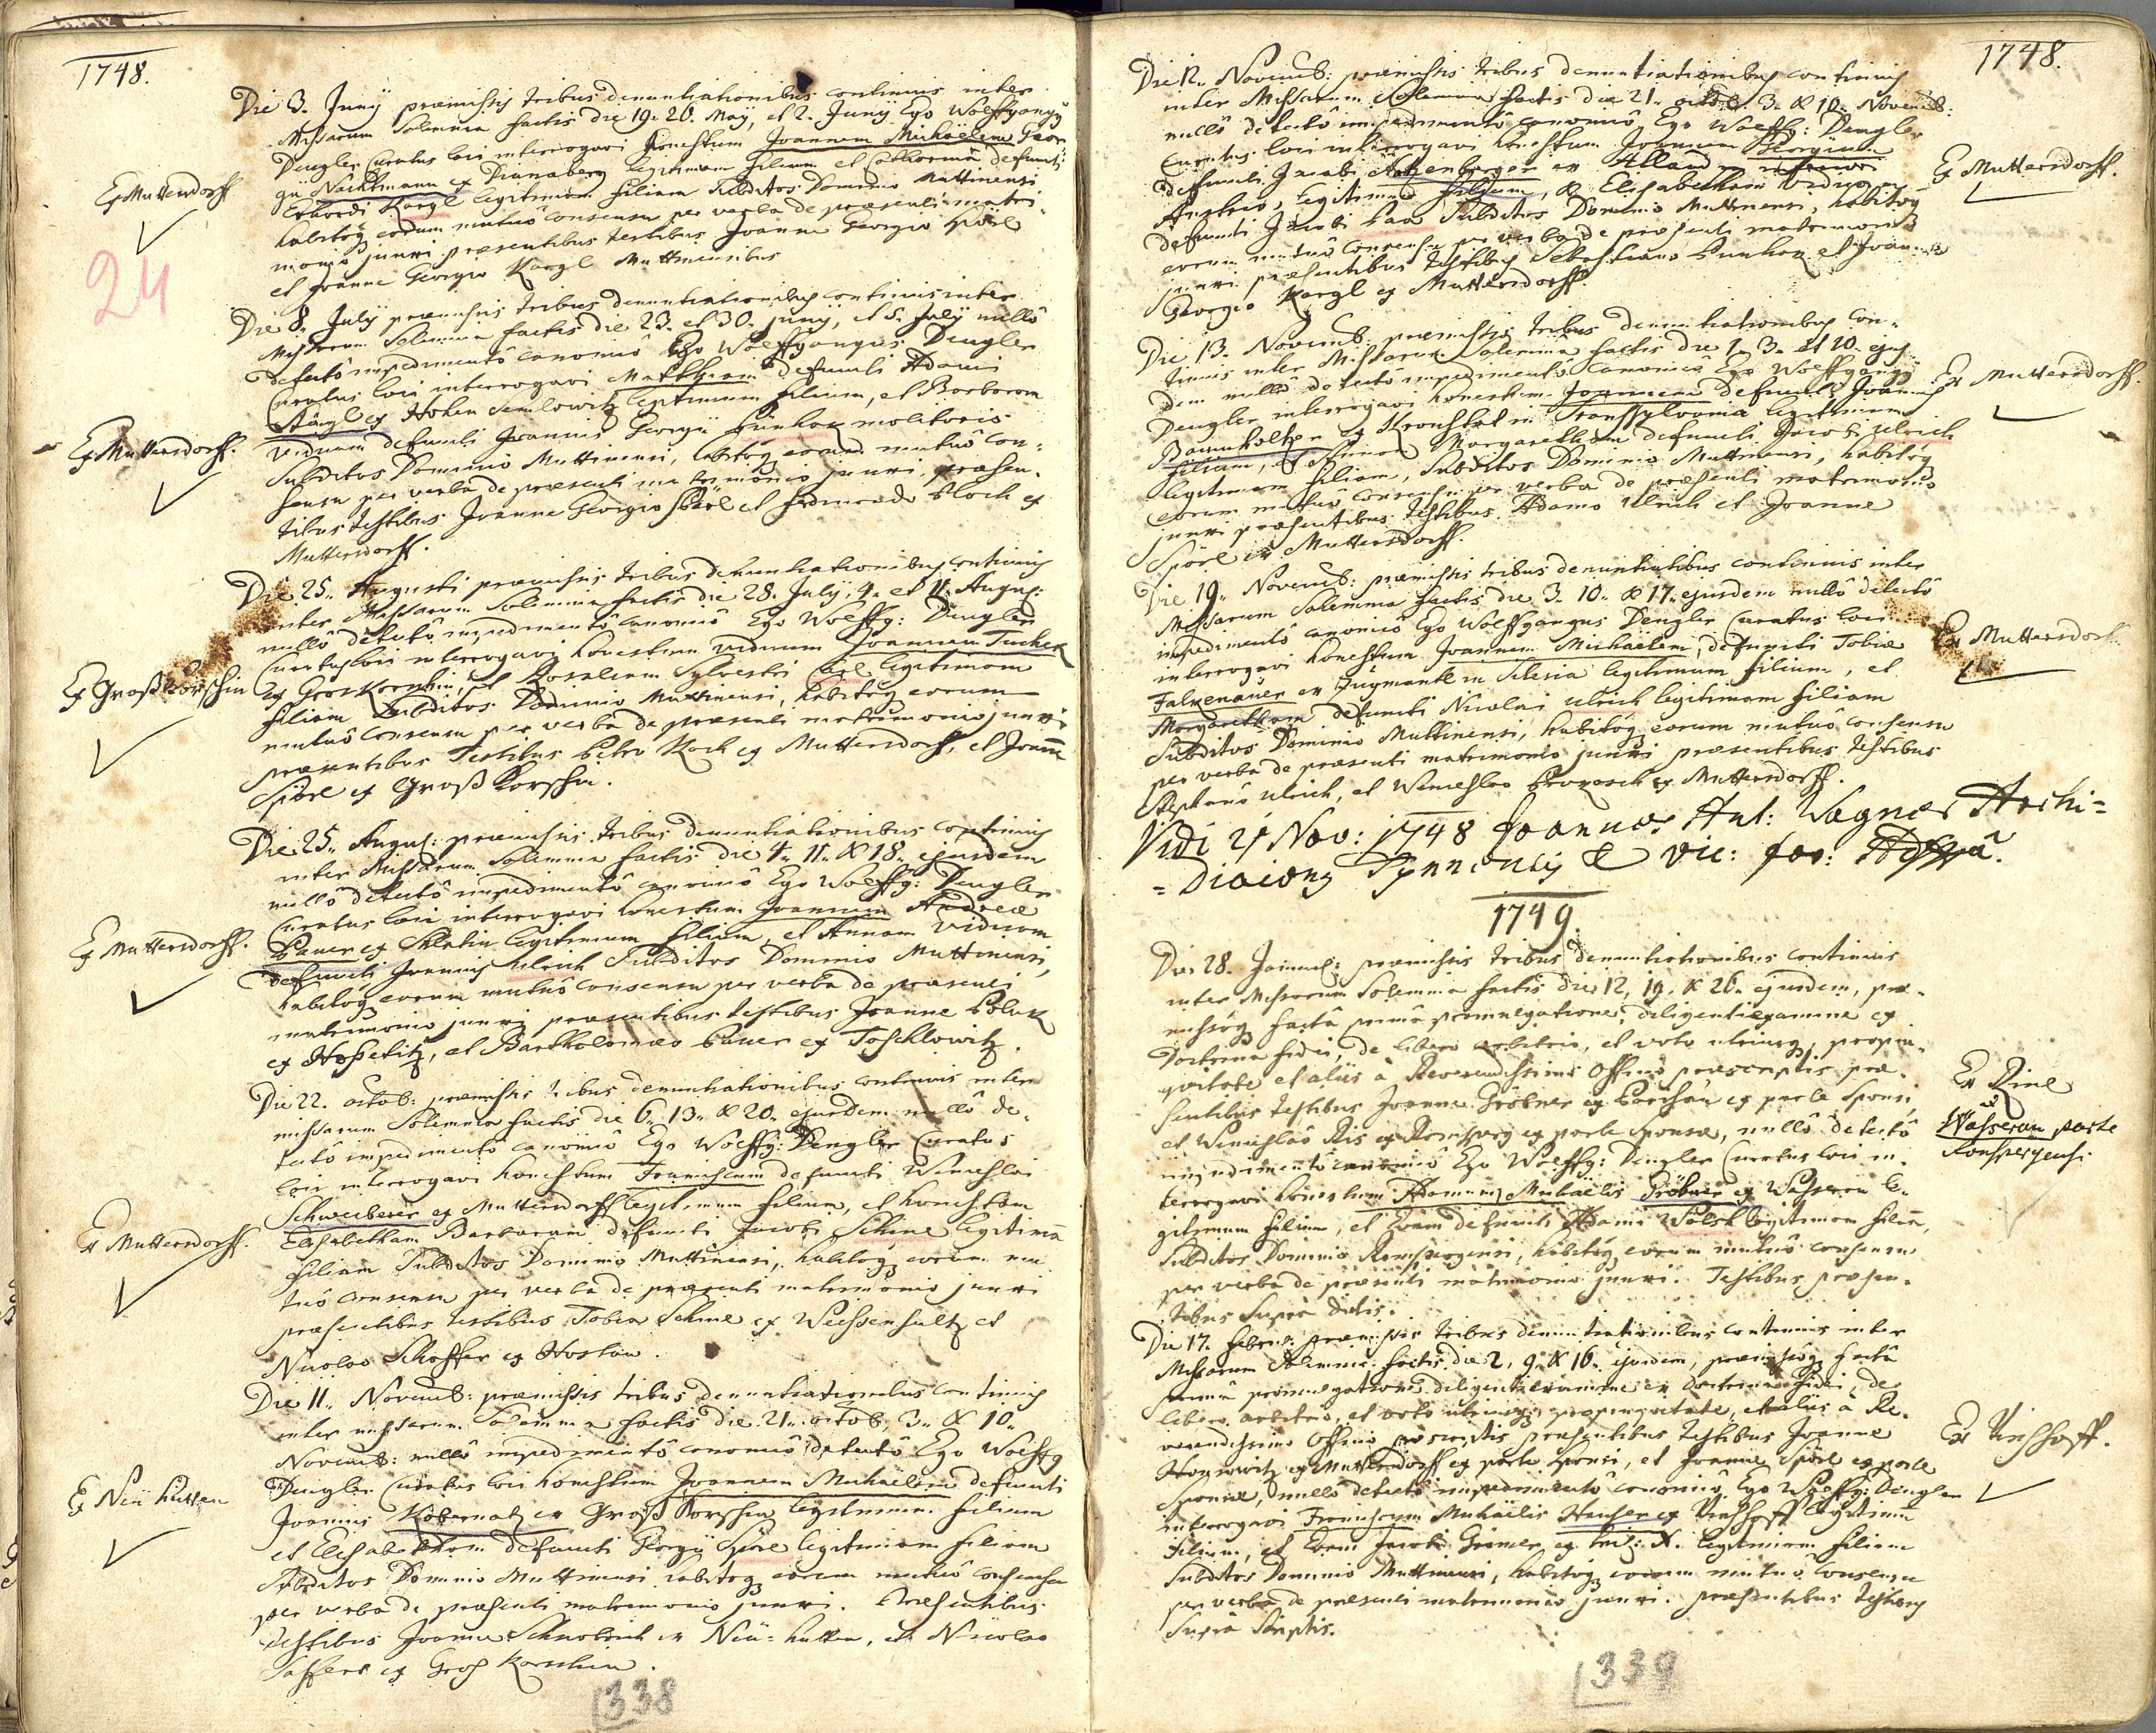 1748.
Die 3. Junÿ præmissis tribus denuntiationibus continuis inter
Missarum Solemnia factis die 19. 26. Maÿ, et 2. Junÿ Ego Wolffgangg
Dengler Curatus loci interrogavi honestum Joannem Michaëlem Geor
gii Nachtmann ex Dianaberg legitimum filium et defuncti
Erhardi Kargl legitimam filiam Subditos Dominio Muttinensi
habitoq eorum mutuô consensu per verba de præsenti matri,
monio junxi præsentibus testibus Joanne Georgio Spörl
et Joanne Georgio Kargl Muttinensibus
Ex Muttersdorff
24
Die 8. Julÿ præmissis tribus denuntiationibus continuis inter
Missarum Solemnia factis die 23. et 30. Junÿ, et 5. Julÿ nullô
detectô impedimentô canonicô Ego Wolffgangus Dengler
Curatus loci interrogavi Matthiam defuncti Adami
ex Hohen Semlowitz legitimum filium, et Barbaram
viduam defuncti Joannis Georgii molitoris
Subditos Dominio Muttinensi, habitoq eorum mutuô con,
sensu per verba de præsenti matrimonio junxi præsen,
tibus testibus Joanne Georgio Spörl et Bloch ex
Muttersdorff.
Ex Muttersdorff.
Die 25. Augusti præmissis tribus denuntiationibus continuis
inter Missarum Solemnia factis die 28. Julÿ, 4. et 11. Augus:
nullô detectô impedimentô canonicô Ego Wolffg: Dengler
Curatus loci interrogavi honestum viduum Joannem
ex Groskorschin, et Rosaliam Sylvestri legitimam
filiam Subditos Dominio Muttinensi, habitoq eorum
mutuô consensu per verba de præsenti matrimonio junxi
præsentibus Testibus Petro Koch ex Muttersdorff, et Joanne
Spörl ex Groß Korschin.
Ex Großkorschin
Die 25. August: præmissis tribus denuntiationibus continuis
inter Missarum Solemnia factis die 4. 11. & 18. ejusdem
nullô detectô impedimentô canonicô Ego Wolffg: Dengler
Curatus loci interrogavi honestum Joannem Andreæ
Bauer ex legitimum filium, et Annam viduam
defuncti Joannis Ulrich Subditos Dominio Muttinensi,
habitoq eorum mutuô consensu per verba de præsenti
matrimonio junxi præsentibus testibus Joanne Polak
ex Hossetitz, et Bartholomæo Bauer ex
Ex Muttersdorff.
Die 22. octob: præmissis tribus denuntiationibus continuis inter
missarum Solemnia factis die 6. 13. & 20. ejusdem nullô de,
tectô impedimentô canonicô Ego Wolffg: Dengler Curatus
loci interrogavi honestum Franciscum defuncti Wenceslai
ex Muttersdorff legitimum filium, et honestam
Elisabetham Barbaram defuncti Jacobi Schine legitimã
filiam Subditos Dominio Muttinensi, habitoq eorum mu
tuô consensu per verba de præsenti matrimonio junxi
præsentibus testibus Tobia Schine ex Weissensultz et
Nicolao Schaffer ex Hostau.
Ex Muttersdorff.
Die 11. Novemb: præmissis tribus denuntiationibus continuis
inter missarum Solemnia factis die 21. octob, 3. & 10.
Novemb: nullô impedimentô canonicô detectô Ego Wolffg
Dengler Curatus loci honestum Joannem Michaëlem defuncti
Joannis Kobernatz ex Groß Korschin legitimum filium
et Elisabetham defuncti Georgii Spörl legitimam filiam
Subditos Dominio Muttinensi habitoq eorum mutuô consensu
per verba de præsenti matrimonio junxi. Præsentibus
testibus Joanne ex Neü=hutten, et Nicolao
ex Groß Korschin.
Ex Neü hutten
338
1748.
Die 12. Novemb: præmissis tribus denuntiationibus continuis
inter Missarum Solemnia factis die 21. octob. 3. & 10. Novemb:
nullô detectô impedimentô canonicô Ego Wolffg: Dengler
Curatus loci interrogavi honestum Joannem Georgium
defuncti Jacobi ex
Austria, legitimum filium, & Elisabetham viduam
defuncti Jacobi Subditos Dominio Muttinensi, habitoq
eorum mutuô consensu per verba de præsenti matrimonio
junxi præsentibus testibus Sebastiano et Joanne
Georgio Kargl ex Muttersdorff.
Ex Muttersdorff.
Die 13. Novemb: præmissis tribus denuntiationibus con,
tinuis inter Missarum Solemnia factis die 1. 3. et 10. ejus
dem nullô detectô impedimentô canonicô Ego Wolffgangg
Dengler interrogavi honestum Joannem defuncti Joannis
Baumholtzer ex Kronstat in Transsylvania legitimum
filium, et Margaretham defuncti Jacobi Ulrich
legitimam filiam, Subditos Dominio Muttinensi, habitoq
eorum mutuô consensu per verba de præsenti matrimonio
junxi præsentibus testibus Adamo Ulrich et Joanne
Spörl ex Muttersdorff.
Ex Muttersdorff.
Die 19. Novemb: præmissis tribus denuntiatibus continuis inter
Missarum Solemnia factis die 3. 10. & 17. ejusdem nullô detectô
impedimentô canonicô Ego Wolffgangus Dengler Curatus loci
interrogavi honestum Joannem Michaëlem, defuncti Tobiæ
Falkenauer ex in Silesia legitimum filium, et
Margaretham defuncti Nicolai Ulrich legitimam filiam
Subditos Dominio Muttinensi, habitoq eorum mutuô consensu
per verba de præsenti matrimonio junxi præsentibus testibus
Stephano Ulrich, et Wenceslao ex Muttersdorff.
Ex Muttersdorff
Vidi 21 Nov: 1748 Joannes Ant: Wagner Archi=
=Diacong & vic: for:
1749.
Die 28. Januar: præmissis tribus denuntiationibus continuis
inter Missarum Solemnia factis die 12, 19. & 26. ejusdem, præ,
missoq factâ primâ promulgatione, diligenti examine ex
Doctrina fidei, de libero arbitrio, et voto utriusq, propin,
quitate et aliis à Reverendissimo Officio præscriptis præ,
sentibus testibus Joanne Gröbner ex ex parte sponsi,
et Wenceslao Ris ex ex parte Sponsæ, nullô detectô
impedimentô canonicô Ego Wolffg: Dengler Curatus loci in,
terrogavi honestum Adamum Michaëlis Gröbner ex Wasserau le,
gitimum filium, et Evam defuncti Adami legitimam filiã,
Subditos Dominio Ronspergensi, habitoq eorum mutuô consensu
per verba de præsenti matrimonio junxi. Testibus præsen,
tibus supra dictis.
Ex
et
Wasserau parte
Ronspergensi
Die 17. Febru: præmissis tribus denuntiationibus continuis inter
Missarum Solemnia factis die 2, 9. & 16. ejusdem, præmissoq factâ
primâ promulgatione diligenti examine ex doctrina Fidei, de
libero arbitrio, et voto utriusq, propinquitate, et aliis à Re,
verendissimo Officio præscriptis præsentibus testibus Joanne
ex Muttersdorff ex parte Sponsi, et Joanne Spörl ex parte
Sponsæ, nullô detectô impedimentô canonicô Ego Wolffg: Dengler
interrogavi Franciscum Michaëlis ex legitimum
filium, et Evam Jacobi ex legitimam filiam
Subditos Dominio Muttinensi, habitoq eorum mutuô consensu
per verba de præsenti matrimonio junxi. præsentibus testibus
Supra Scriptis.
339